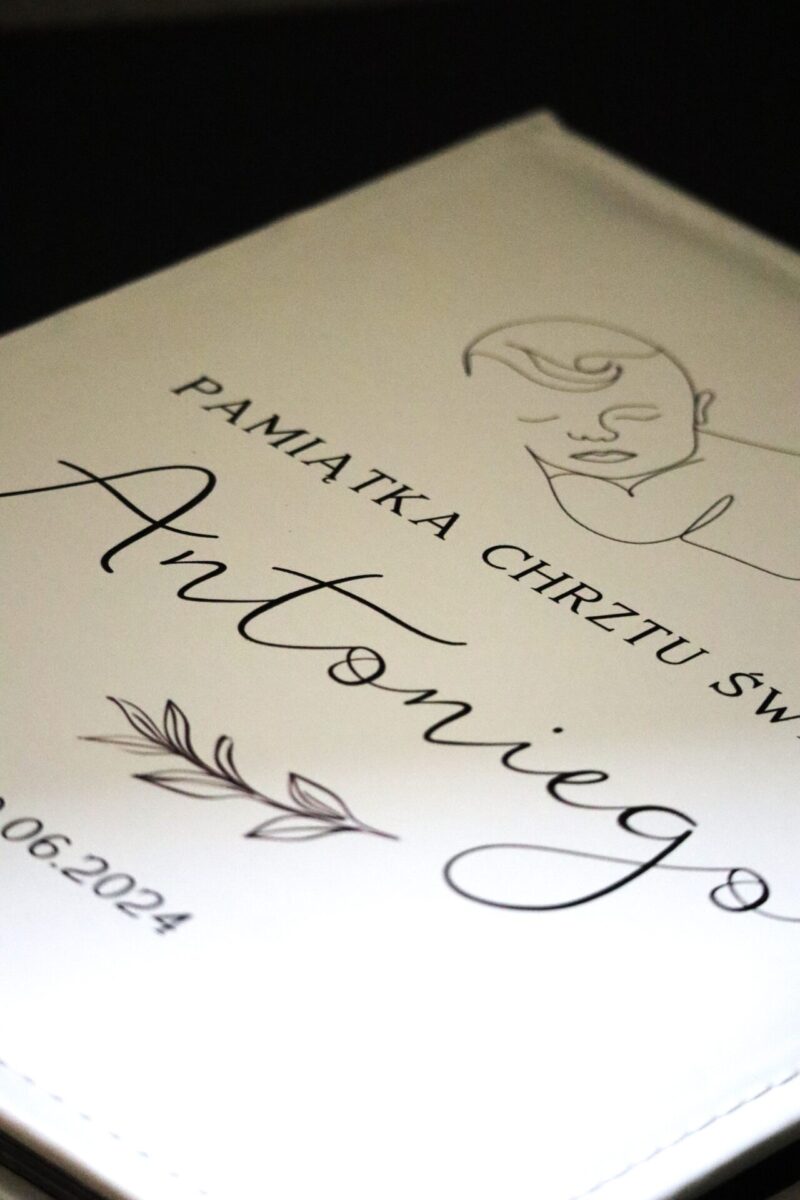 PAMIĄTKA CHRZTU
Antoniego
.06.2024